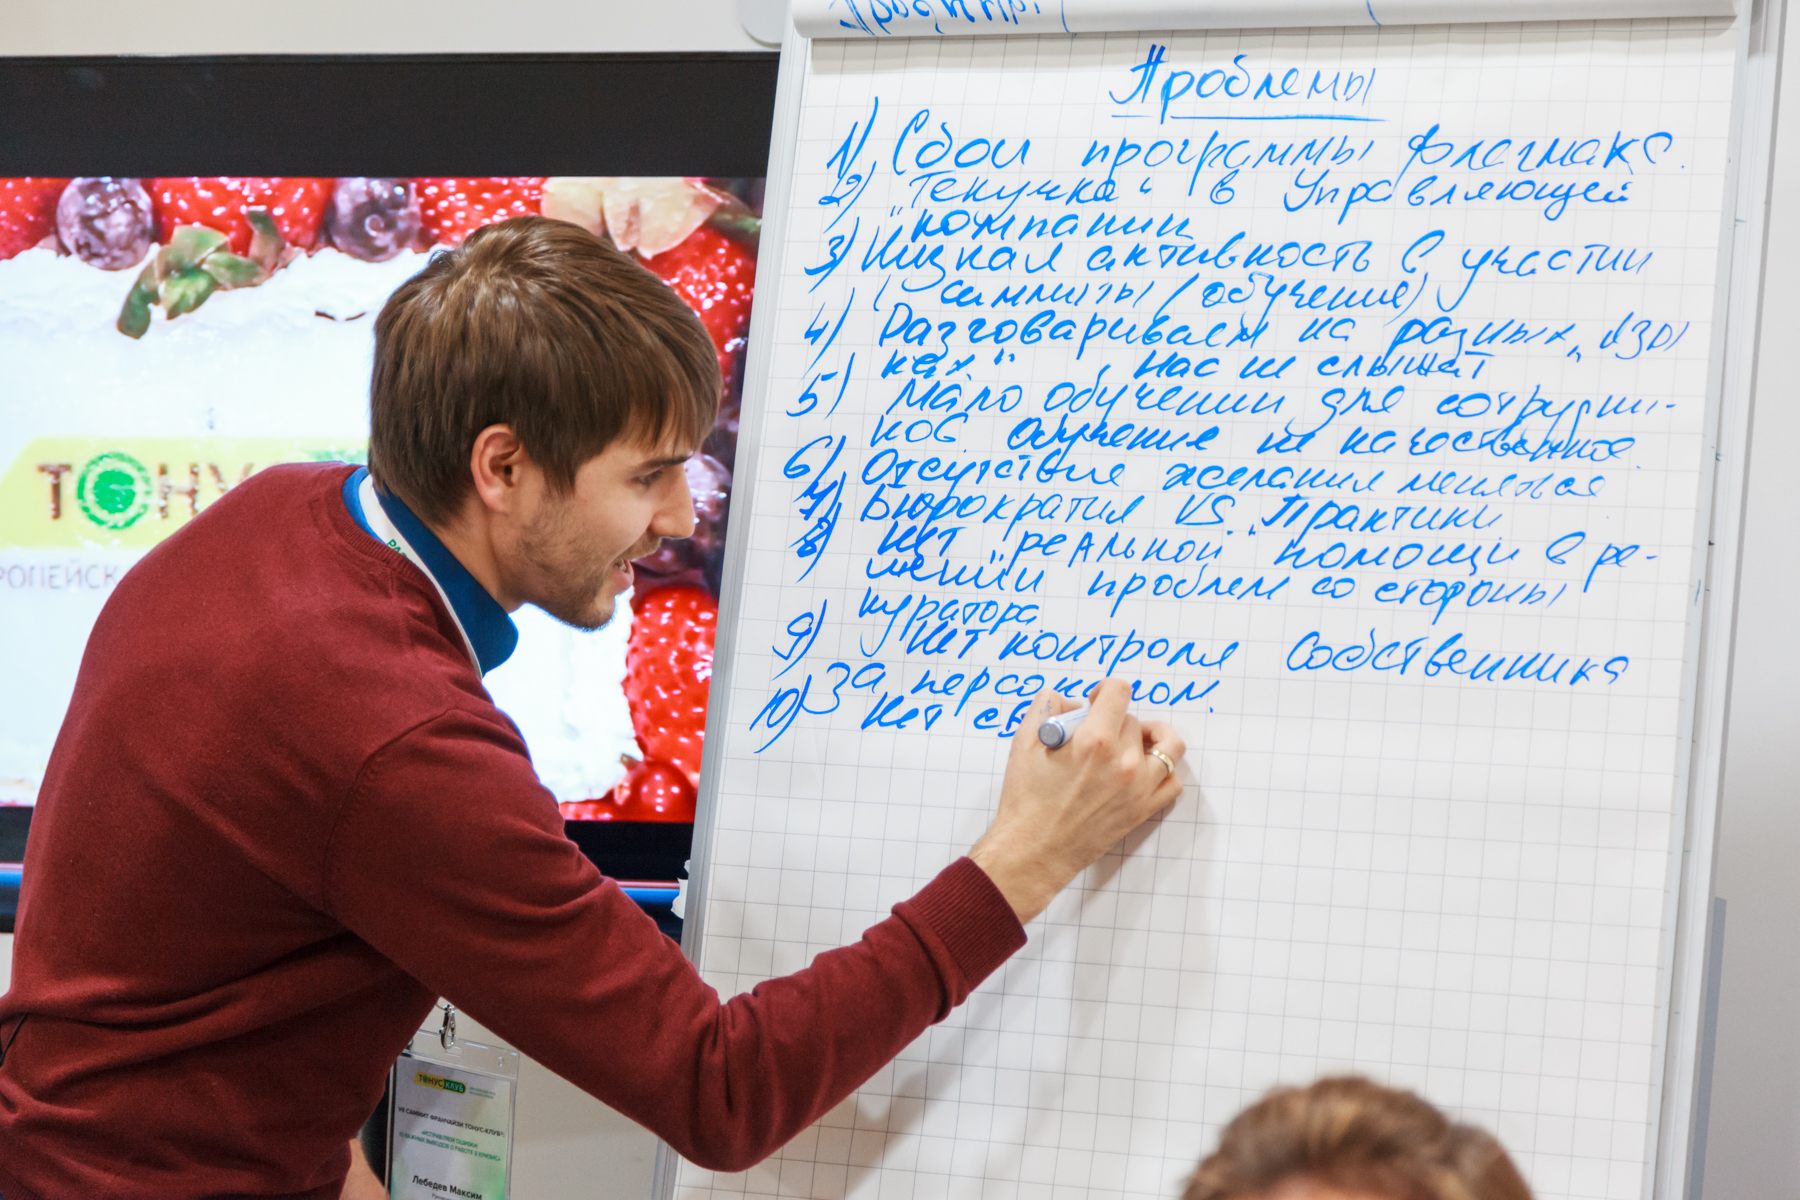 Проблемы
1) Сбои программы флагмакс.
2) „Текучка" в Управляющей
компании
3) Низкая активность в участии
саммиты (обучения)
4) Разговариваем на разных „язы
ках" , нас не слышат
5) Мало обучении для сотрудни-
ков обучение не качественное.
6) Отсутствие желания меняться
7) Бюрократия VS Практики
8) Нет „реальной" помощи в ре-
шении проблем со стороны
куратора.
9) Нет контроля Собственника
за персоналом.
10) Нет св
ТОНУС
РОПЕЙСК
ТОНУС КЛУБ
VII САММИТ ФРАНЧАЙЗИ ТОНУС-КЛУБ®:
Лебедев Максим